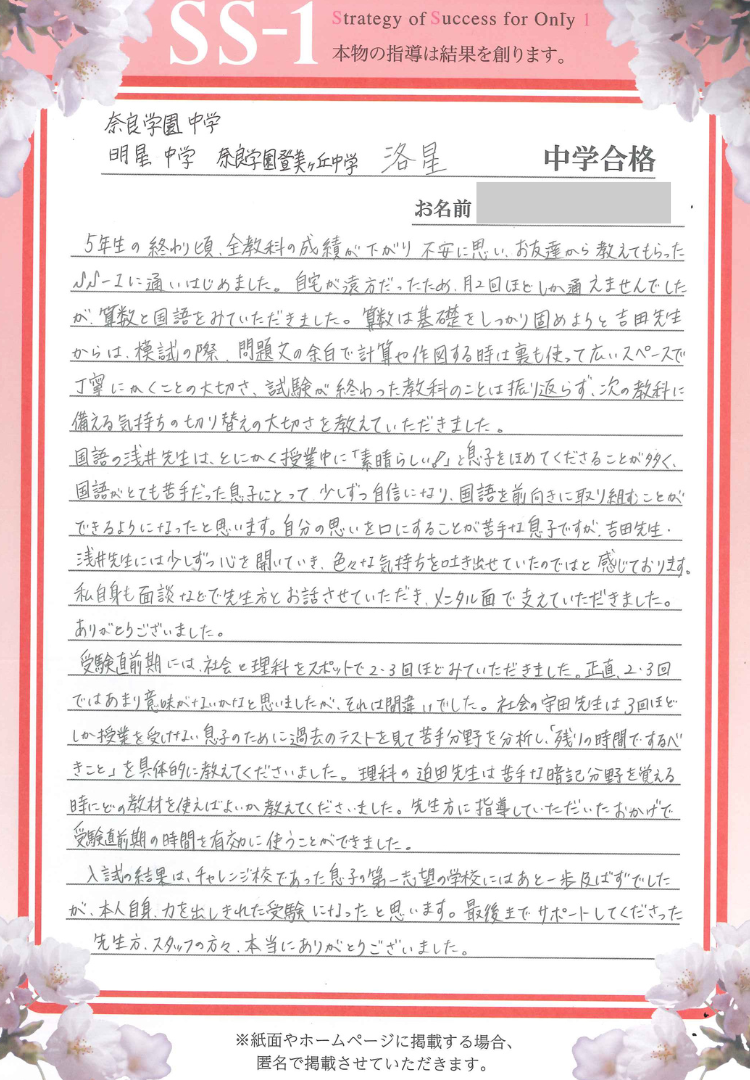 SS-1
Strategy of Success for Only 1
本物の指導は結果を創ります。
奈良学園 中学
明星 中学 奈良学園登美ヶ丘中学 洛星 中学合格
お名前
5年生の終わり頃、全教科の成績が下がり不安に思い、お友達から教えてもらった
SS-1に通いはじめました。自宅が遠方だったため、月2回ほどしか通えませんでした
が、算数と国語をみていただきました。算数は基礎をしっかり固めようと吉田先生
からは、模試の際、問題文の余白で計算や作図する時は裏も使って広いスペースで
丁寧にかくことの大切さ、試験が終わった教科のことは振り返らず、次の教科に
備える気持ちの切り替えの大切さを教えていただきました。
国語の浅井先生は、とにかく授業中に「素晴らしい!」と息子をほめてくださることが多く、
国語がとても苦手だった息子にとって、少しずつ自信になり、国語を前向きに取り組むことが
できるようになったと思います。自分の思いを口にすることが苦手な息子ですが、吉田先生・
浅井先生には少しずつ心を開いていき、色々な気持ちを吐き出せていたのではと感じております。
私自身も面談などで先生方とお話させていただき、メンタル面で支えていただきました。
ありがとうございました。
受験直前期には、社会と理科をスポットで2・3回ほどみていただきました。正直、2・3回
ではあまり意味がないかなと思いましたが、それは間違いでした。社会の守田先生は、3回ほど
しか授業を受けない息子のために過去のテストを見て苦手分野を分析し、「残りの時間でするべ
きこと」を具体的に教えてくださいました。理科の迫田先生は苦手な暗記分野を覚える
時にどの教材を使えばよいか教えてくださいました。先生方に指導していただいたおかげで
受験直前期の時間を有効に使うことができました。
入試の結果は、チャレンジ校であった息子の第一志望の学校にはあと一歩及ばずでした
が、本人自身、力を出しきれた受験になったと思います。最後までサポートしてくださった
先生方、スタッフの方々、本当にありがとうございました。
※紙面やホームページに掲載する場合、
匿名で掲載させていただきます。